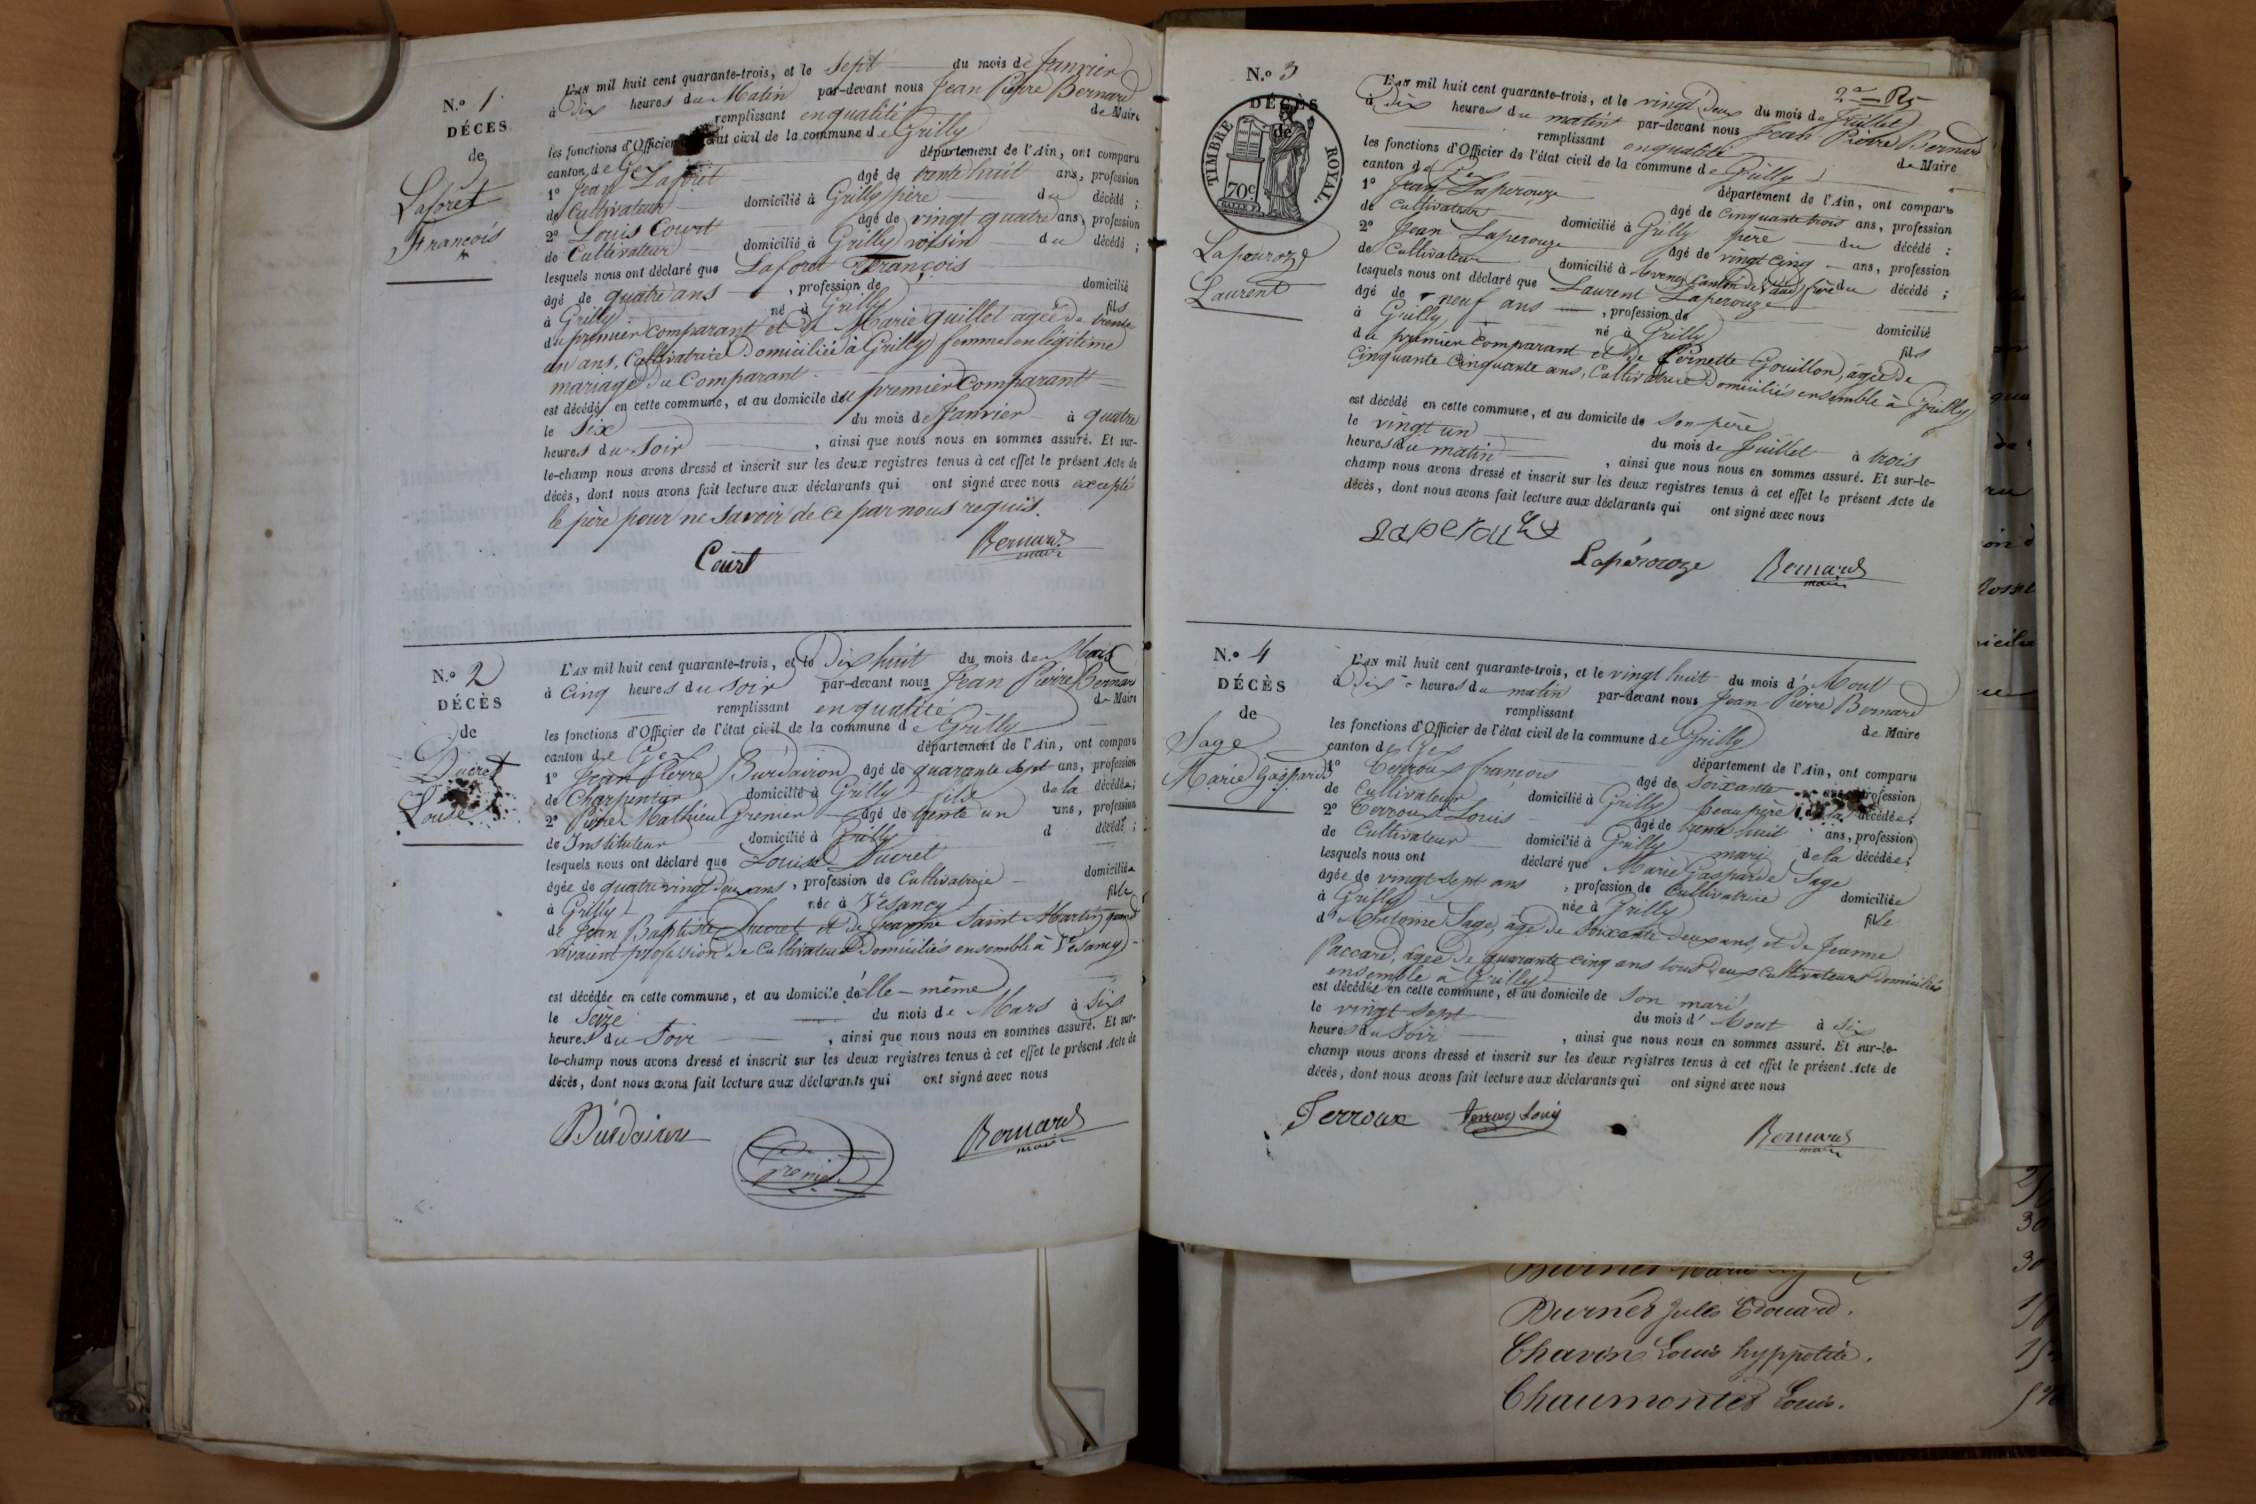 N.o 1.
DÉCÈS
de
Laforêt
François
L'AN mil huit cent quarante-trois, et le sept du mois de Janvier
à Dix heures du Matin par-devant nous Jean Pierre Bernard
remplissant en qualité de Maire
les fonctions d'Officier de l'état civil de la commune de Grilly
canton de Gex département de l'Ain, ont comparu
1° Jean Laforêt agé de trente huit ans, profession
de Cultivateur domicilié à Grilly père du décédé ;
2° Louis Court âgé de vingt quatre ans, profession
de Cultivateur domicilié à Grilly voisin du décédé ;
lesquels nous ont déclaré que Laforêt François
âgé de quatre ans , profession de domicilié
à Grilly né à Grilly fils
du premier comparant et de Marie quillet agée de trente
un ans, Cultivatrice Domiciliée à Grilly femme en légitime
mariage du Comparant
est décédé en cette commune, et au domicile du premier Comparant
le Six du mois de Janvier à quatre
heures du Soir , ainsi que nous nous en sommes assuré. Et sur-
le-champ nous avons dressé et inscrit sur les deux registres tenus à cet effet le présent Acte de
décès, dont nous avons fait lecture aux déclarants qui ont signé avec nous excepté
le père pour ne savoir de ce par nous requis.
Court Bernard
maire
N.o 2
DÉCÈS
de
Ducret
Louise
L'AN mil huit cent quarante-trois, et le Dix huit du mois de Mars
à Cinq heures du Soir par-devant nous Jean Pierre Bernard
remplissant en qualité de Maire
les fonctions d'Officier de l'état civil de la commune de Grilly
canton de Gex département de l'Ain, ont comparu
1° Jean Pierre Burdairon agé de quarante sept ans, profession
de Charpentier domicilié à Grilly fils de la décédée ;
2° Pierre Mathieu Grenier âgé de trente un ans, profession
de Instituteur domicilié à Grilly d décédé ;
lesquels nous ont déclaré que Louise Ducret
âgée de quatre vingt deux ans , profession de Cultivatrice domiciliée
à Grilly née à Vésancy fille
de Jean Baptiste Ducret et de Jeanne Saint Martin quand
vivaient profession de Cultivateurs Domiciliés ensemble à Vésancy
est décédée en cette commune, et au domicile d'elle-même
le Seize du mois de Mars à Six
heures du Soir , ainsi que nous nous en sommes assuré. Et sur-
le-champ nous avons dressé et inscrit sur les deux registres tenus à cet effet le présent Acte de
décès, dont nous avons fait lecture aux déclarants qui ont signé avec nous
Burdairon Grenier Bernard
maire
N.o 3
DÉCÈS
de
TIMBRE ROYAL.
70c
Laperoroze
Laurent
L'AN mil huit cent quarante-trois, et le vingt Deux du mois de Juillet
à Dix heures du matin par-devant nous Jean Pierre Bernard
remplissant en qualité de Maire
les fonctions d'Officier de l'état civil de la commune de Grilly
canton de Gex département de l'Ain, ont comparu
1° Jean Laperouze âgé de cinquante trois ans, profession
de Cultivateur domicilié à Grilly père du décédé ;
2° Jean Laperouze âgé de vingt cinq ans, profession
de Cultivateur domicilié à Canton de Vaud frère du décédé ;
lesquels nous ont déclaré que Laurent Laperouze
âgé de neuf ans , profession de domicilié
à Grilly né à Grilly fils
du premier Comparant et de Pernette Gouillon, agée de
Cinquante Cinquante ans, Cultivatrice Domiciliés ensemble à Grilly
est décédé en cette commune, et au domicile de son père
le vingt un du mois de Juillet à trois
heures du matin , ainsi que nous nous en sommes assuré. Et sur-le-
champ nous avons dressé et inscrit sur les deux registres tenus à cet effet le présent Acte de
décès, dont nous avons fait lecture aux déclarants qui ont signé avec nous
Lapérouze Bernard
maire
N.o 4
DÉCÈS
de
Sage
Marie Gasparde
L'AN mil huit cent quarante-trois, et le vingt huit du mois d'Aout
à Dix heures du matin par-devant nous Jean Pierre Bernard
remplissant de Maire
les fonctions d'Officier de l'état civil de la commune de Grilly
canton de Gex département de l'Ain, ont comparu
1° Terroux françois âgé de Soixante profession
de Cultivateur domicilié à Grilly beau père de la décédée ;
2° Terroux Louis âgé de trente huit ans, profession
de Cultivateur domicilié à Grilly mari de la décédée ;
lesquels nous ont déclaré que Marie Gasparde Sage
âgée de vingt sept ans , profession de Cultivatrice domiciliée
à Grilly née à Grilly fille
d'Antoine Sage, âgé de Soixante deux ans, et de Jeanne
Paccard, agée de quarante cinq ans tous Deux Cultivateurs Domiciliés
ensemble à Grilly
est décédée en cette commune, et au domicile de son mari
le vingt sept du mois d'Aout à Six
heures du Soir , ainsi que nous nous en sommes assuré. Et sur-le-
champ nous avons dressé et inscrit sur les deux registres tenus à cet effet le présent Acte de
décès, dont nous avons fait lecture aux déclarants qui ont signé avec nous
Terroux Terroux Louis Bernard
maire
Burnet Jules Edouard.
Chavin Louis hyppolite.
Chaumontet Louis.